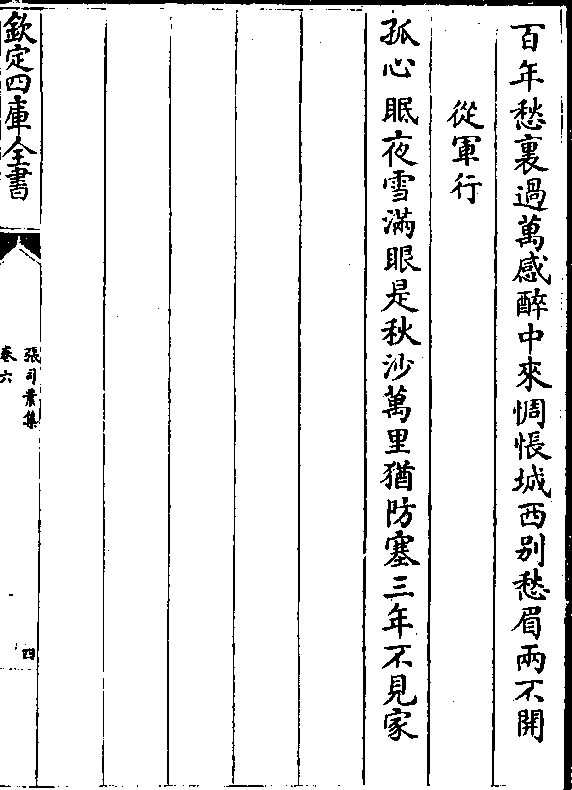 百年愁裏過萬感醉中來惆悵城西别愁眉兩不開
從軍行
孤心眠夜雪滿眼是秋沙萬里猶防塞三年不見家
欽定四庫全書
張司業集
卷六
四